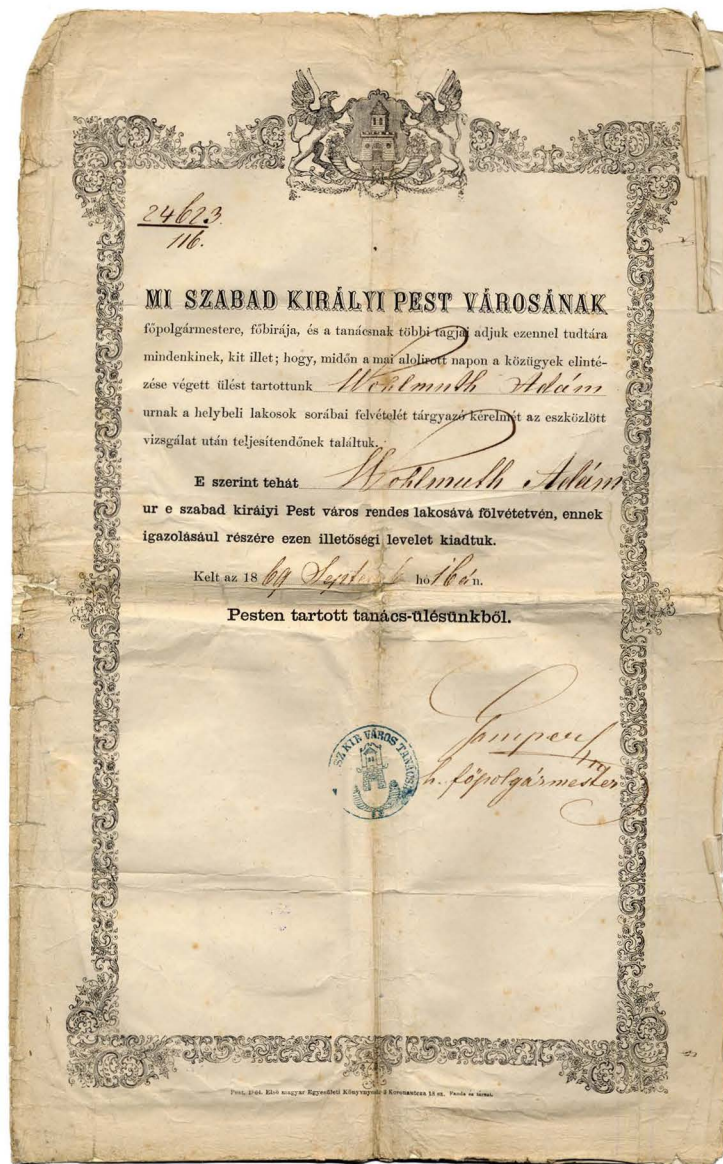 24623.
116.
MI SZABAD KIRÁLYI PEST VÁROSÁNAK
főpolgármestere, főbirája, és a tanácsnak többi tagjai adjuk ezennel tudtára
mindenkinek, kit illet; hogy, midőn a mai alolirott napon a közügyek elinté-
zése végett ülést tartottunk Wohlmuth Adám
urnak a helybeli lakosok sorábai felvételét tárgyazó kérelmét az eszközlött
vizsgálat után teljesítendőnek találtuk.
E szerint tehát Wohlmuth Adám
ur e szabad királyi Pest város rendes lakosává fölvétetvén, ennek
igazolásául részére ezen illetőségi levelet kiadtuk.
Kelt az 1869 Septemb hó 16án.
Pesten tartott tanács-ülésünkből.
SZ KIR VÁROS TANÁCSA
h. főpolgármester
Pest, Első magyar Egyesületi Könyvnyomda Koronautcza 18 sz. Fanda és társai.